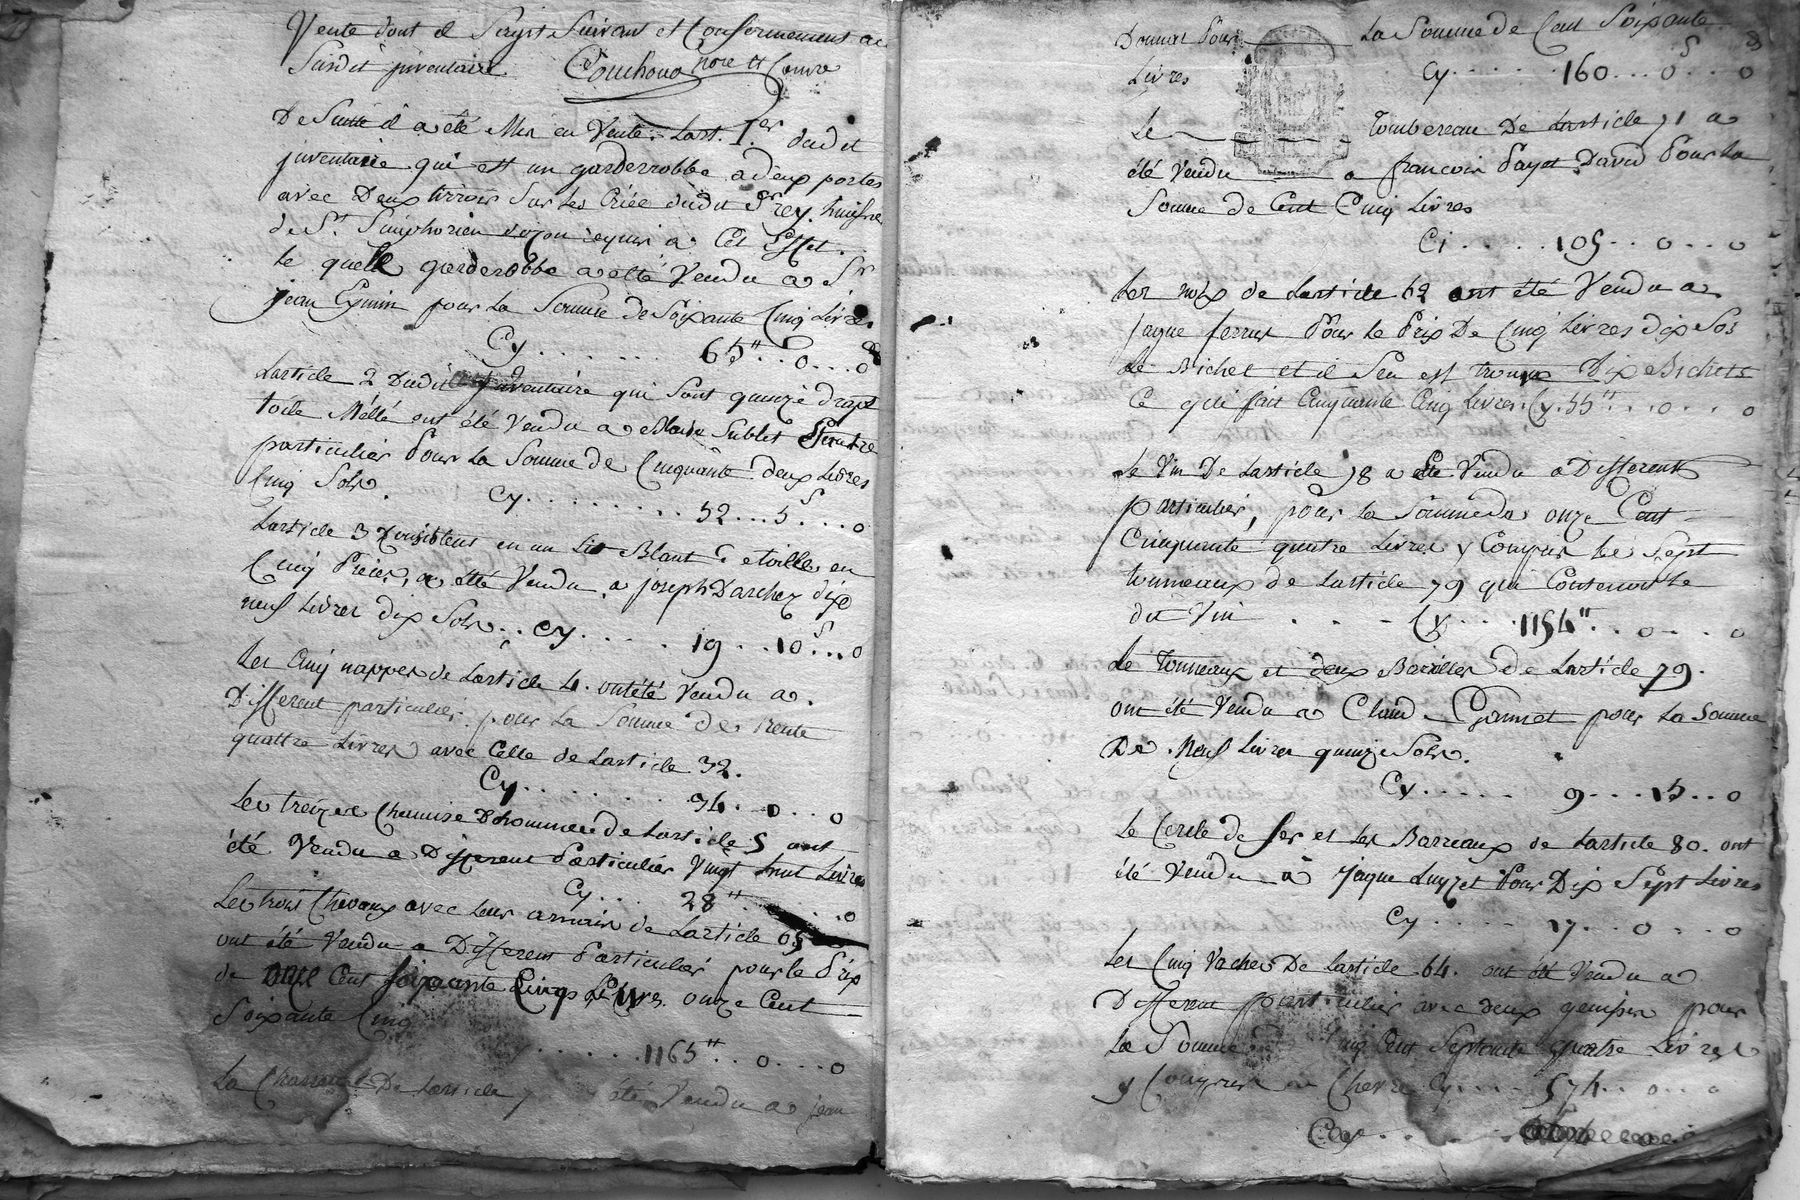 Vente dont il Sagist Suivant et Conformement au
Susdit jnventaire Couchoud nore et Comre
De Suitte il a été Mis en Vente Lart. 1.er dudit
jnventaire qui est un garderobbe a deux portes
avec Deux tirroir Sur Les Criée dudit Sr rey huissre
de St Simphorien dozon requis a Cet Effet.
le quelle garderobbe a eté Vendu a Sr
jean Epinin pour La Somme de Soixante Cinq Livres
Cy........ 65"...0...0
Larticle 2 Dudit jnventaire qui Sont quinze drapt
toile Mêllé ont été Vendu a Blaise Sublet
particulier Pour La Somme de Cinquante deux Livres
Cinq Sols. Cy........ 52...5s...0
Larticle 3 Consistent en un Lit Blant etoille en
Cinq Pieces, a été Vendu a joseph Darchez dix
neuf Livres dix Sols.. Cy...... 19...10s...0
Les Cinq nappes de Larticle 4. ont été Vendu a
Different particulier pour La Somme de trente
quattre Livres avec Celle de Larticle 32.
Cy......... 34..0...0
Les treize Chemise D'homme de Larticle 5 ont
été Vendu a Different Particulier Vingt huit Livres
Cy.... 28".....0
Les trois Chevaux avec Leur arnais de Larticle 65
ont été Vendu a Different Particulier pour Le Prix
de onze Cent soixante Cinq Livres onze Cent
Soixante Cinq
......1165"..0...0
La De Larticle 7 été Vendu a jean
Donnat Pour La Somme de Cent Soixante
Livres Cy...... 160...0s...0
Le Tombereau De Larticle 71 a
été Vendu a francois Payet David Pour La
Somme de Cent Cinq Livres
Ci..... 105..0...0
Les noix de Larticle 62 ont été Vendu a
jaque ferrus Pour Le Prix De Cinq Livres dix Sos
Le Bichet et il Sen est trouvé Dix Bichets
Ce qui fait Cinquante Cinq Livres Cy. 55"...0...0
Le Vin De Larticle 78 a été Vendu a Different
particulier, pour La Somme de onze Cent
Cinquante quatre Livres y Compris Le Sept
tonneaux de Larticle 79 qui Contenoit Le
dit Vin . . . Cy.... 1154"...0...0
Le Tonneaux et deux Barilles de Larticle 79.
ont été Vendu a Claud Gonnet pour La Somme
De Neuf Livres quinze Sols.
Cy..... 9...15..0
Le Cercle de fer et Les Barreaux de Larticle 80. ont
été Vendu a Jaque Luyzet Pour Dix Sept Livres
Cy...... 17...0...0
Les Cinq Vaches De Larticle 64. ont été Vendu a
Different particulier avec deux genisse pour
La Somme Cinq Cent Septante quatre Livres
y Compris Chevre Cy.... 574..0...0